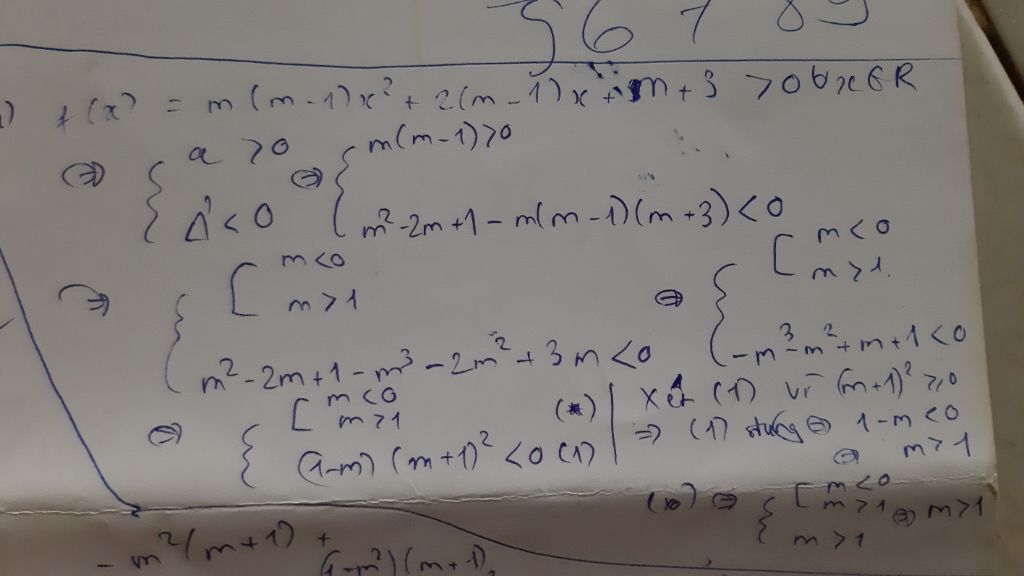 5 6 7 8 9
f(x) = m(m-1)x² + 2(m-1)x + m + 3 > 0 ∀x∈R
⇔ { a > 0 ; Δ' < 0 ⇔ { m(m-1) > 0 ; m² - 2m + 1 - m(m-1)(m+3) < 0
⇔ { [ m < 0 ; m > 1 ; m² - 2m + 1 - m³ - 2m² + 3m < 0 ⇔ { [ m < 0 ; m > 1. ; -m³ - m² + m + 1 < 0
⇔ { [ m < 0 ; m > 1 (*) ; (1-m)(m+1)² < 0 (1)
Xét (1) vì (m+1)² ≥ 0
⇒ (1) đúng ⇔ 1 - m < 0
⇔ m > 1
(*) ⇔ { [ m < 0 ; m > 1 ; m > 1 ⇔ m > 1
- m²(m+1) + (1-m²)(m+1)